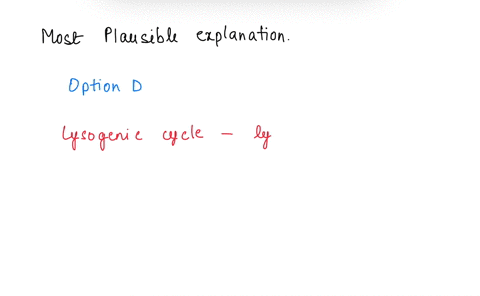 Most Plausible explanation.
Option D
Lysogenic cycle - ly